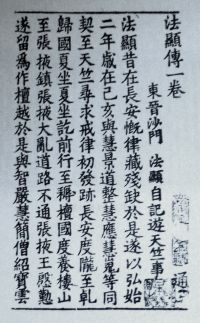 法顯傳一卷
東晉沙門 法顯自記遊天竺事
法顯昔在長安慨律藏殘缺於是遂以弘始
二年歲在己亥與慧景道整慧應慧嵬等同
契至天竺尋求戒律初發跡長安度隴至乾
歸國夏坐夏坐訖前行至耨檀國度養樓山
至張掖鎮張掖大亂道路不通張掖王慇懃
遂留為作檀越於是與智嚴慧簡僧紹寶雲